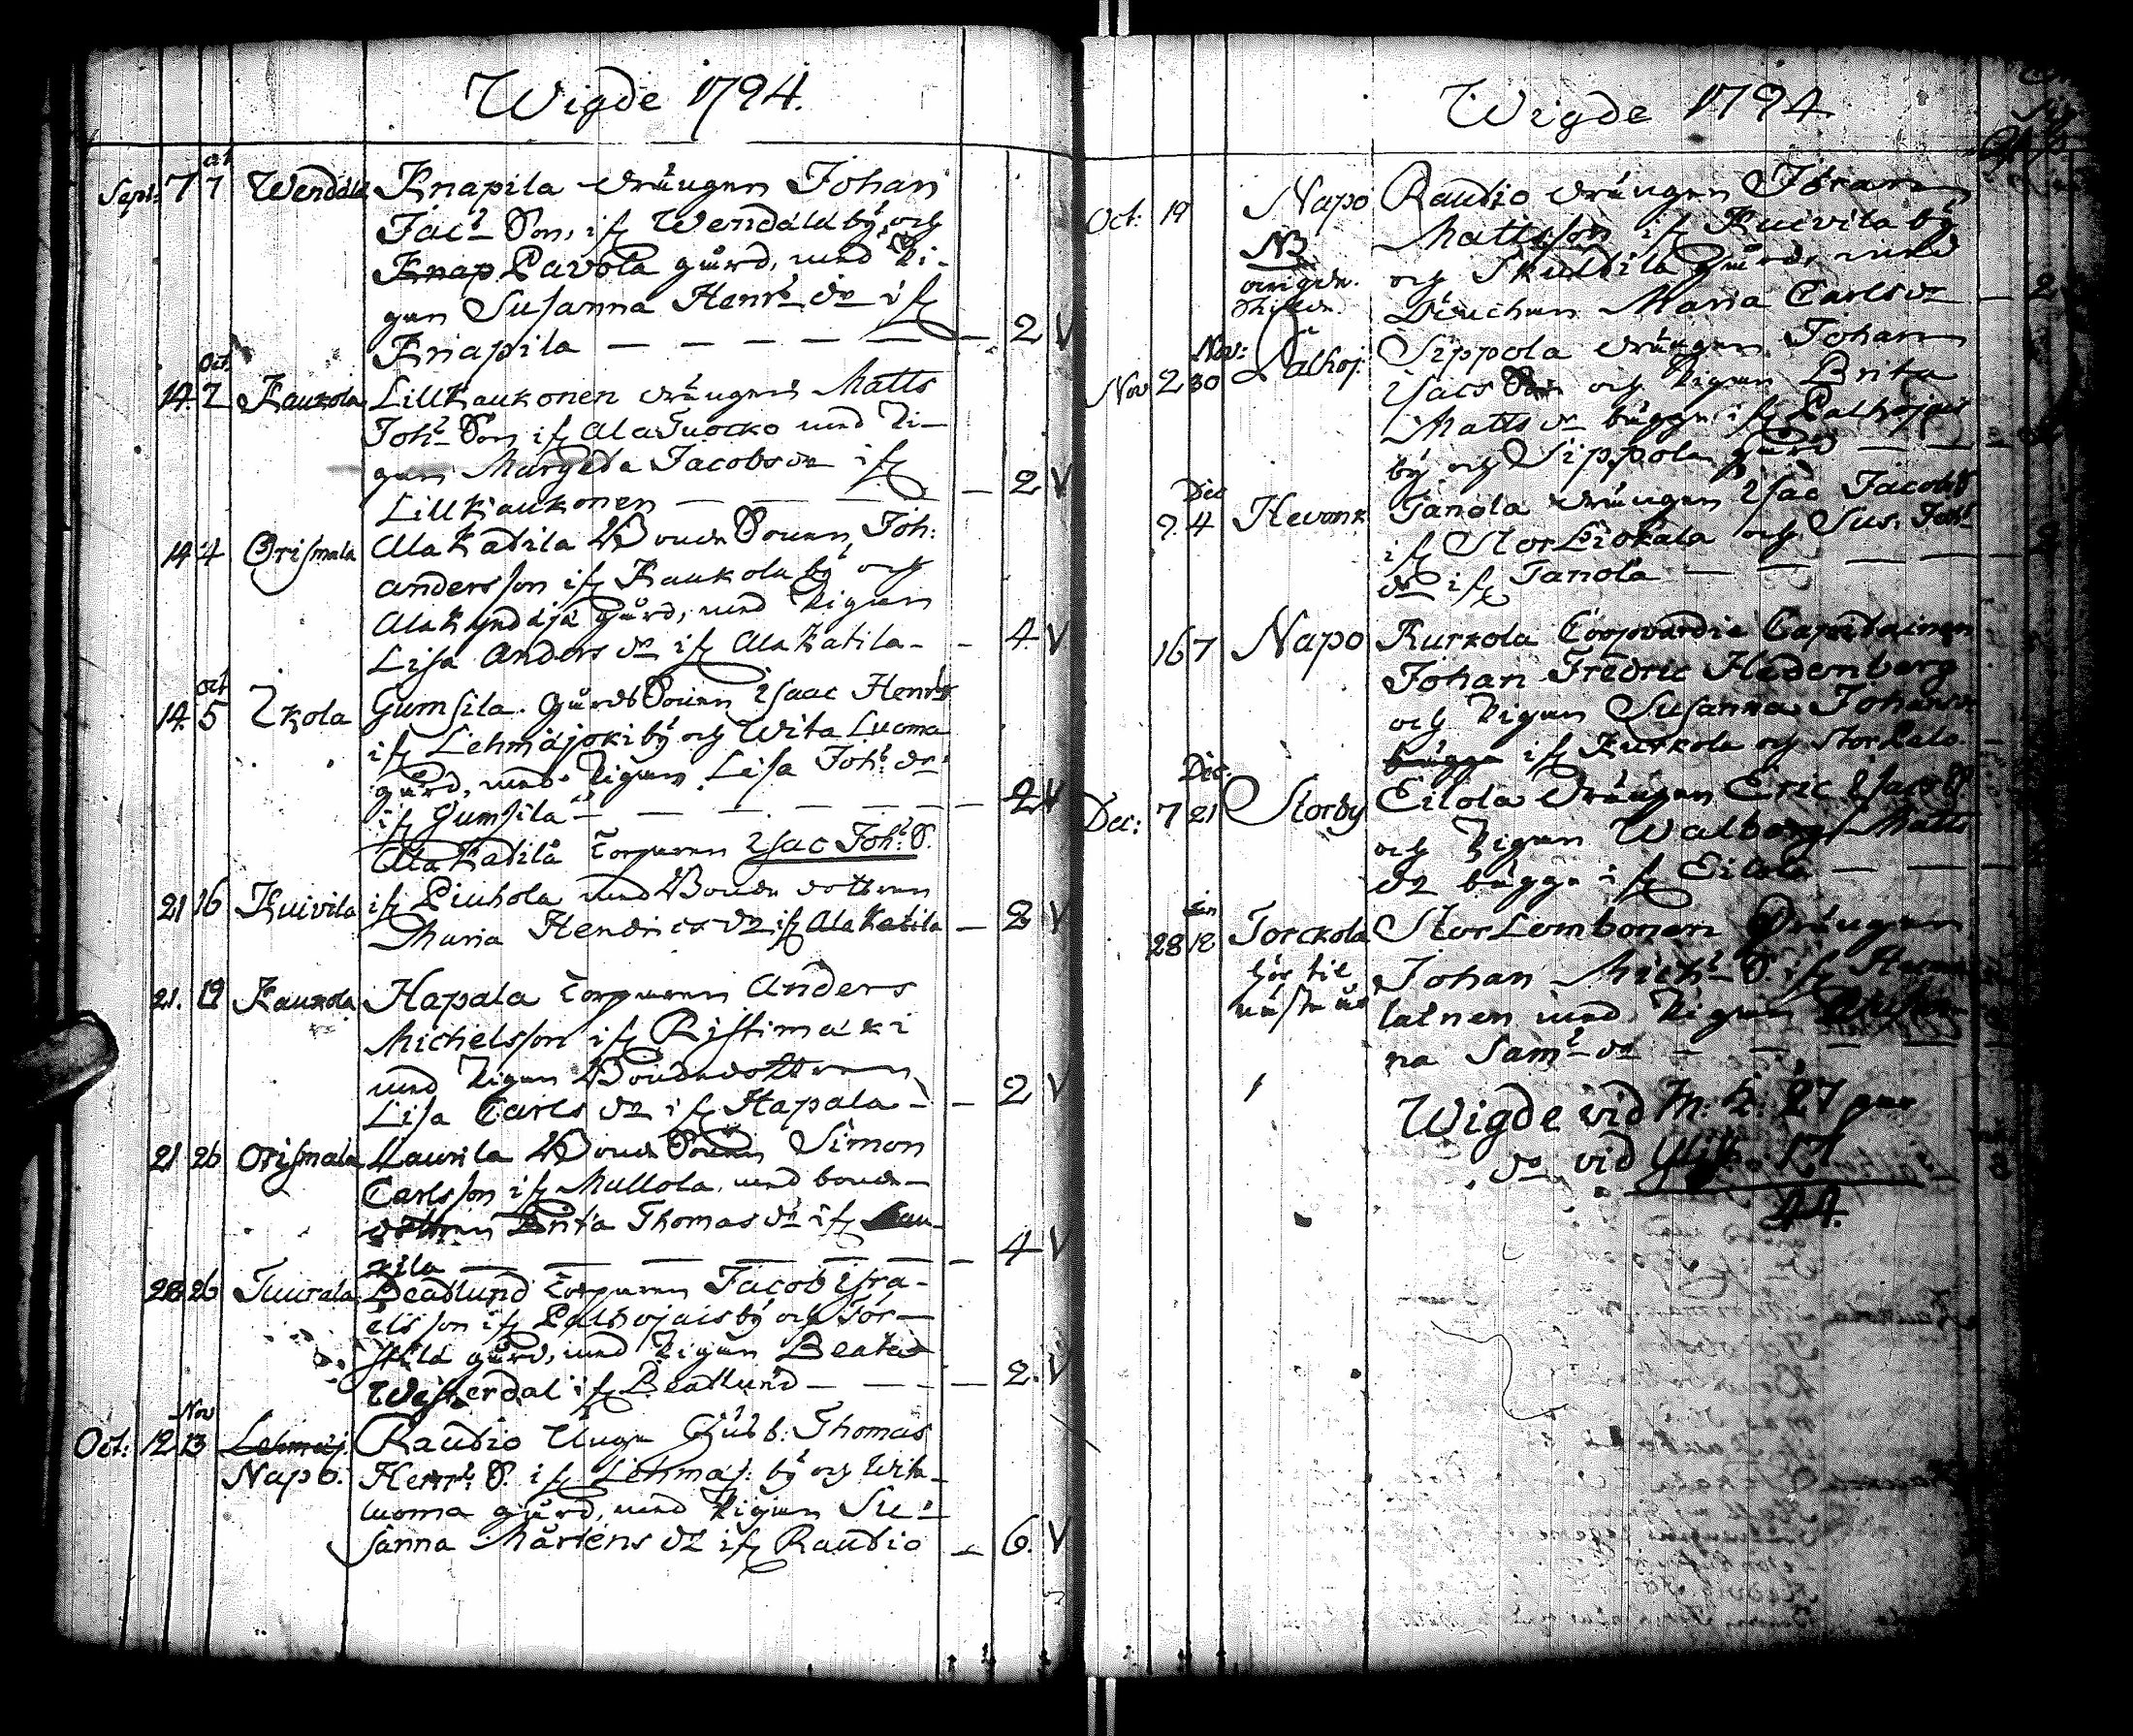 Wigde 1794.
oct
Sept: 7 7 Wendälä Knapila drängen Johan
Jacs Son, ifr Wendälä by, och
Knap Pavola gård, med Pi-
gan Susanna Henrs dr ifr
Knapila — — — — — — 2 V
Oct
14. 2 Kaukola LillKaukonen drängen Matts
Johs Son ifr AlaTuocko med Pi-
gan Margeta Jacobs dr ifr
LillKaukonen — — — — 2 V
14 4 Orismala AlaKatila Bonde Sonen, Joh:
Andersson ifr Kaukola by och
Gård, med Pigan
Lisa Anders dr ifr AlaKatila - - 4. V
oct
14. 5 Ikola Gumsila. Gårds Sonen Isaac Henrs
ifr Lehmäjoki by och Wita Luoma
gård, med Pigan Lisa Johs dr
ifr Gumsila — — — — — — 2 V
AlaKatila Torparen Isac Johs S.
21 16 Kuivila ifr Piuhola med Bonde dottren
Maria Hendrics dr ifr AlaKatila — 2 V
21. 19 Kaukola Hapala Torparen Anders
Michelsson ifr Ristimäki
med Pigan Bondedottren
Lisa Carls dr ifr Hapala - — 2 V
21 26 Orismala Laurila Bonde Sonen Simon
Carlsson ifr Mullola, med bonde-
dottren Brita Thomas dr ifr Lau-
rila — — — — — — 4 V
28 26 Tuurala Beatlund Torparen Jacob Isra-
elsson ifr Palhojais by och Tör-
gård, med Pigan Beata
Westerdal ifr Beatlund — — — 2. V
Nov
Oct: 12 13 Lehmäj.
Raudio Unge Husb: Thomas
Napo. Henrs S. ifr Lehmäj: by och Wita-
luoma gård, med Pigan Su-
sanna Mårtens dr ifr Raudio — 6. V
Wigde 1794
Oct: 19 Napo Raudio drängen Jöran
Mattsson ifr Kuivila by
NB
och Skultila Gård, med
Maria Carls dr — 2
Nov:
Nov 2 30 Palhoj. Sippola drängen Johan
Isacs Son och Pigan Brita
Matts dr bägge ifr Palhojais
by och Sippola gård — —
Dec
9. 4 Hevonk Tanola drängen Isac Jacobs S
ifr Och Sus. Johs
dr ifr Tanola — — — —
16 7 Napo Kurkola Coopvardie Capitainen
Johan Fredric Hedenberg
och Pigan Susanna Johans dr
bägge ifr Kurkola och StorPelo. —
Dec.
Dec: 7 21 Storby Eilola Drängen Eric Isacs S.
och Pigan Walborg Matts
dr bägge ifr Eilola — — —
28 12 Torckola StorLombonen Drängen
hör til Johan Michs S. ifr
nästa år lainen med Pigan
na Sams dr — — — —
Wigde vid M: K: 27 par
do vid 17
44.